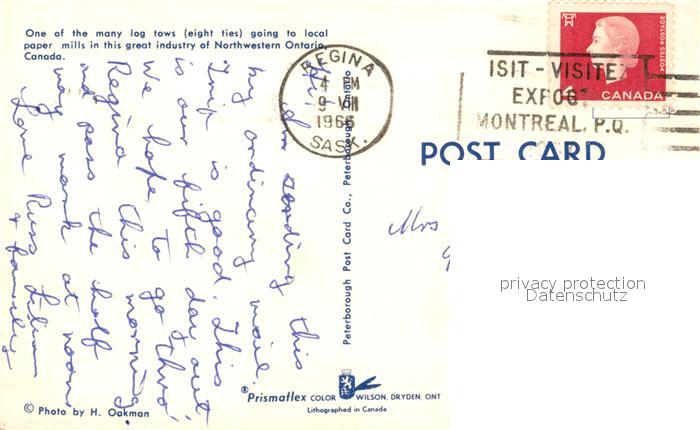 One of the many log tows (eight ties) going to local
paper mills in this great industry of Northwestern Ontario,
Canada.
Hi! Am sending this
by ordinary mail.
Trip is good. This
is our fifth day out
We hope to go thro'
Regina this morning,
and pass the half
way mark at noon
Love Russ, Lilian
& family
© Photo by H. Oakman
Peterborough Post Card Co., Peterborough, Ontario
® Prismaflex COLOR WILSON, DRYDEN, ONT
Lithographed in Canada
REGINA
4 PM
9 VIII
1966
SASK.
ISIT - VISITEZ
EXPO67
MONTREAL, P.Q.
POSTES POSTAGE
4
CANADA
POST CARD
Mrs
privacy protection
Datenschutz